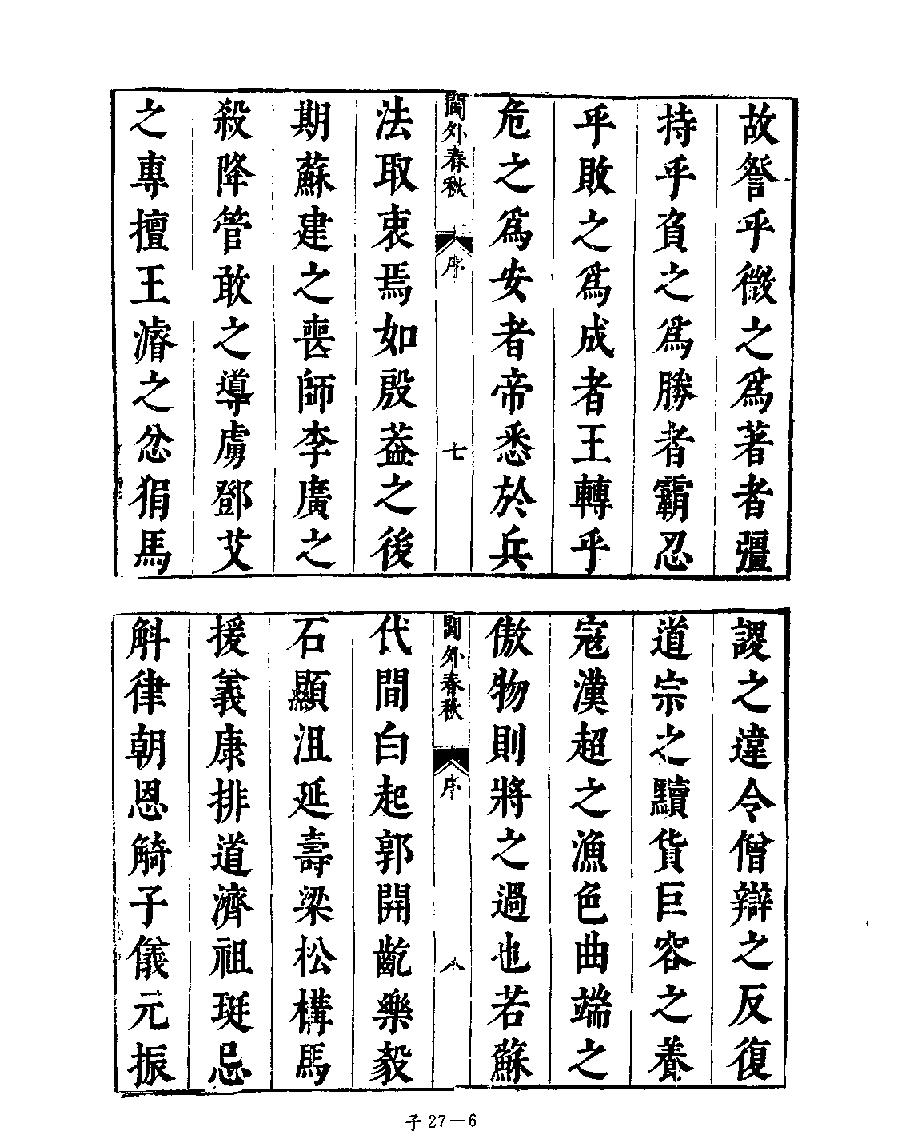 故詧乎微之爲著者彊
持乎負之爲勝者霸忍
乎敗之爲成者王轉乎
危之爲安者帝悉於兵
閫外春秋 序 七
法取衷焉如殷葢之後
期蘇建之喪師李廣之
殺降管敢之導虜鄧艾
之專擅王濬之忿狷馬
謖之違令僧辯之反復
道宗之黷貨巨容之養
寇漢超之漁色曲端之
傲物則將之過也若蘇
閫外春秋 序 八
代間白起郭開齕樂毅
石顯沮延壽梁松構馬
援義康排道濟祖珽忌
斛律朝恩觭子儀元振
子27—6